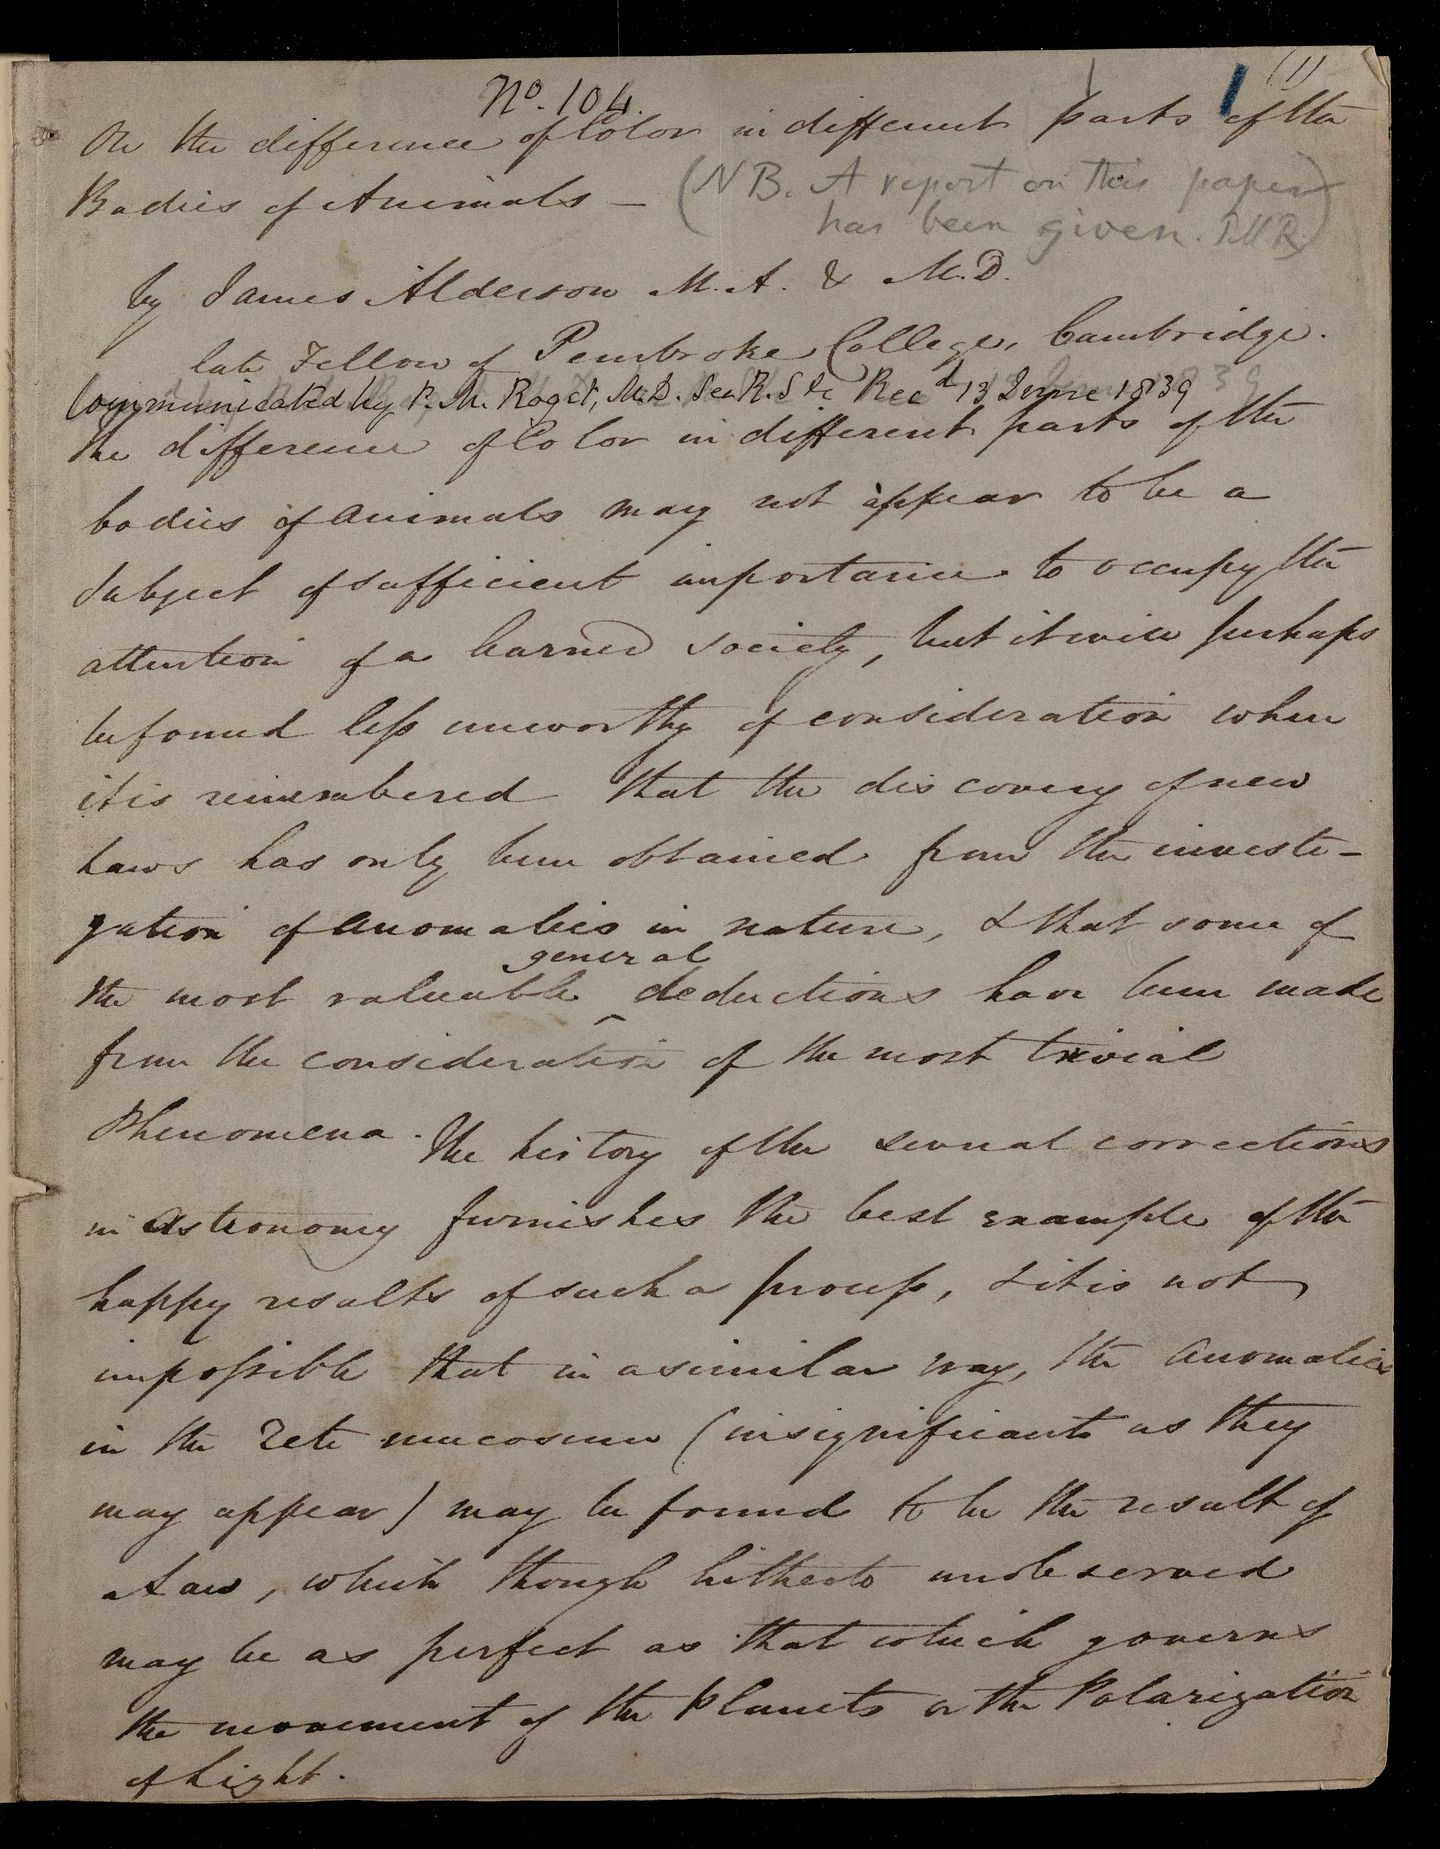 (1)
No. 104.
On the difference of Color in different parts of the
Bodies of Animals —
(NB. A report on this paper
has been given. P.M.R.)
by James Alderson M.A. & M.D.
late Fellow of Pembroke College, Cambridge.
Communicated by P. M. Roget, M.D. Sec R.S &c Recd 13 June 1839
The difference of Color in different parts of the
bodies of animals may not appear to be a
Subject of sufficient importance to occupy the
attention of a learned society, but it will perhaps
be found less unworthy of consideration when
it is remembered that the discovery of new
Laws has only been obtained from the investi-
gation of anomalies in nature, & that some of
general
the most valuable ^ deductions have been made
from the consideration of the most trivial
Phenomena. The history of the several corrections
in astronomy furnishes the best example of the
happy results of such a process, & it is not
impossible that in a similar way, the anomalies
in the Rete mucosum (insignificant as they
may appear) may be found to be the result of
a Law, which though hitherto unobserved
may be as perfect as that which governs
the movement of the Planets or the Polarization
of Light.